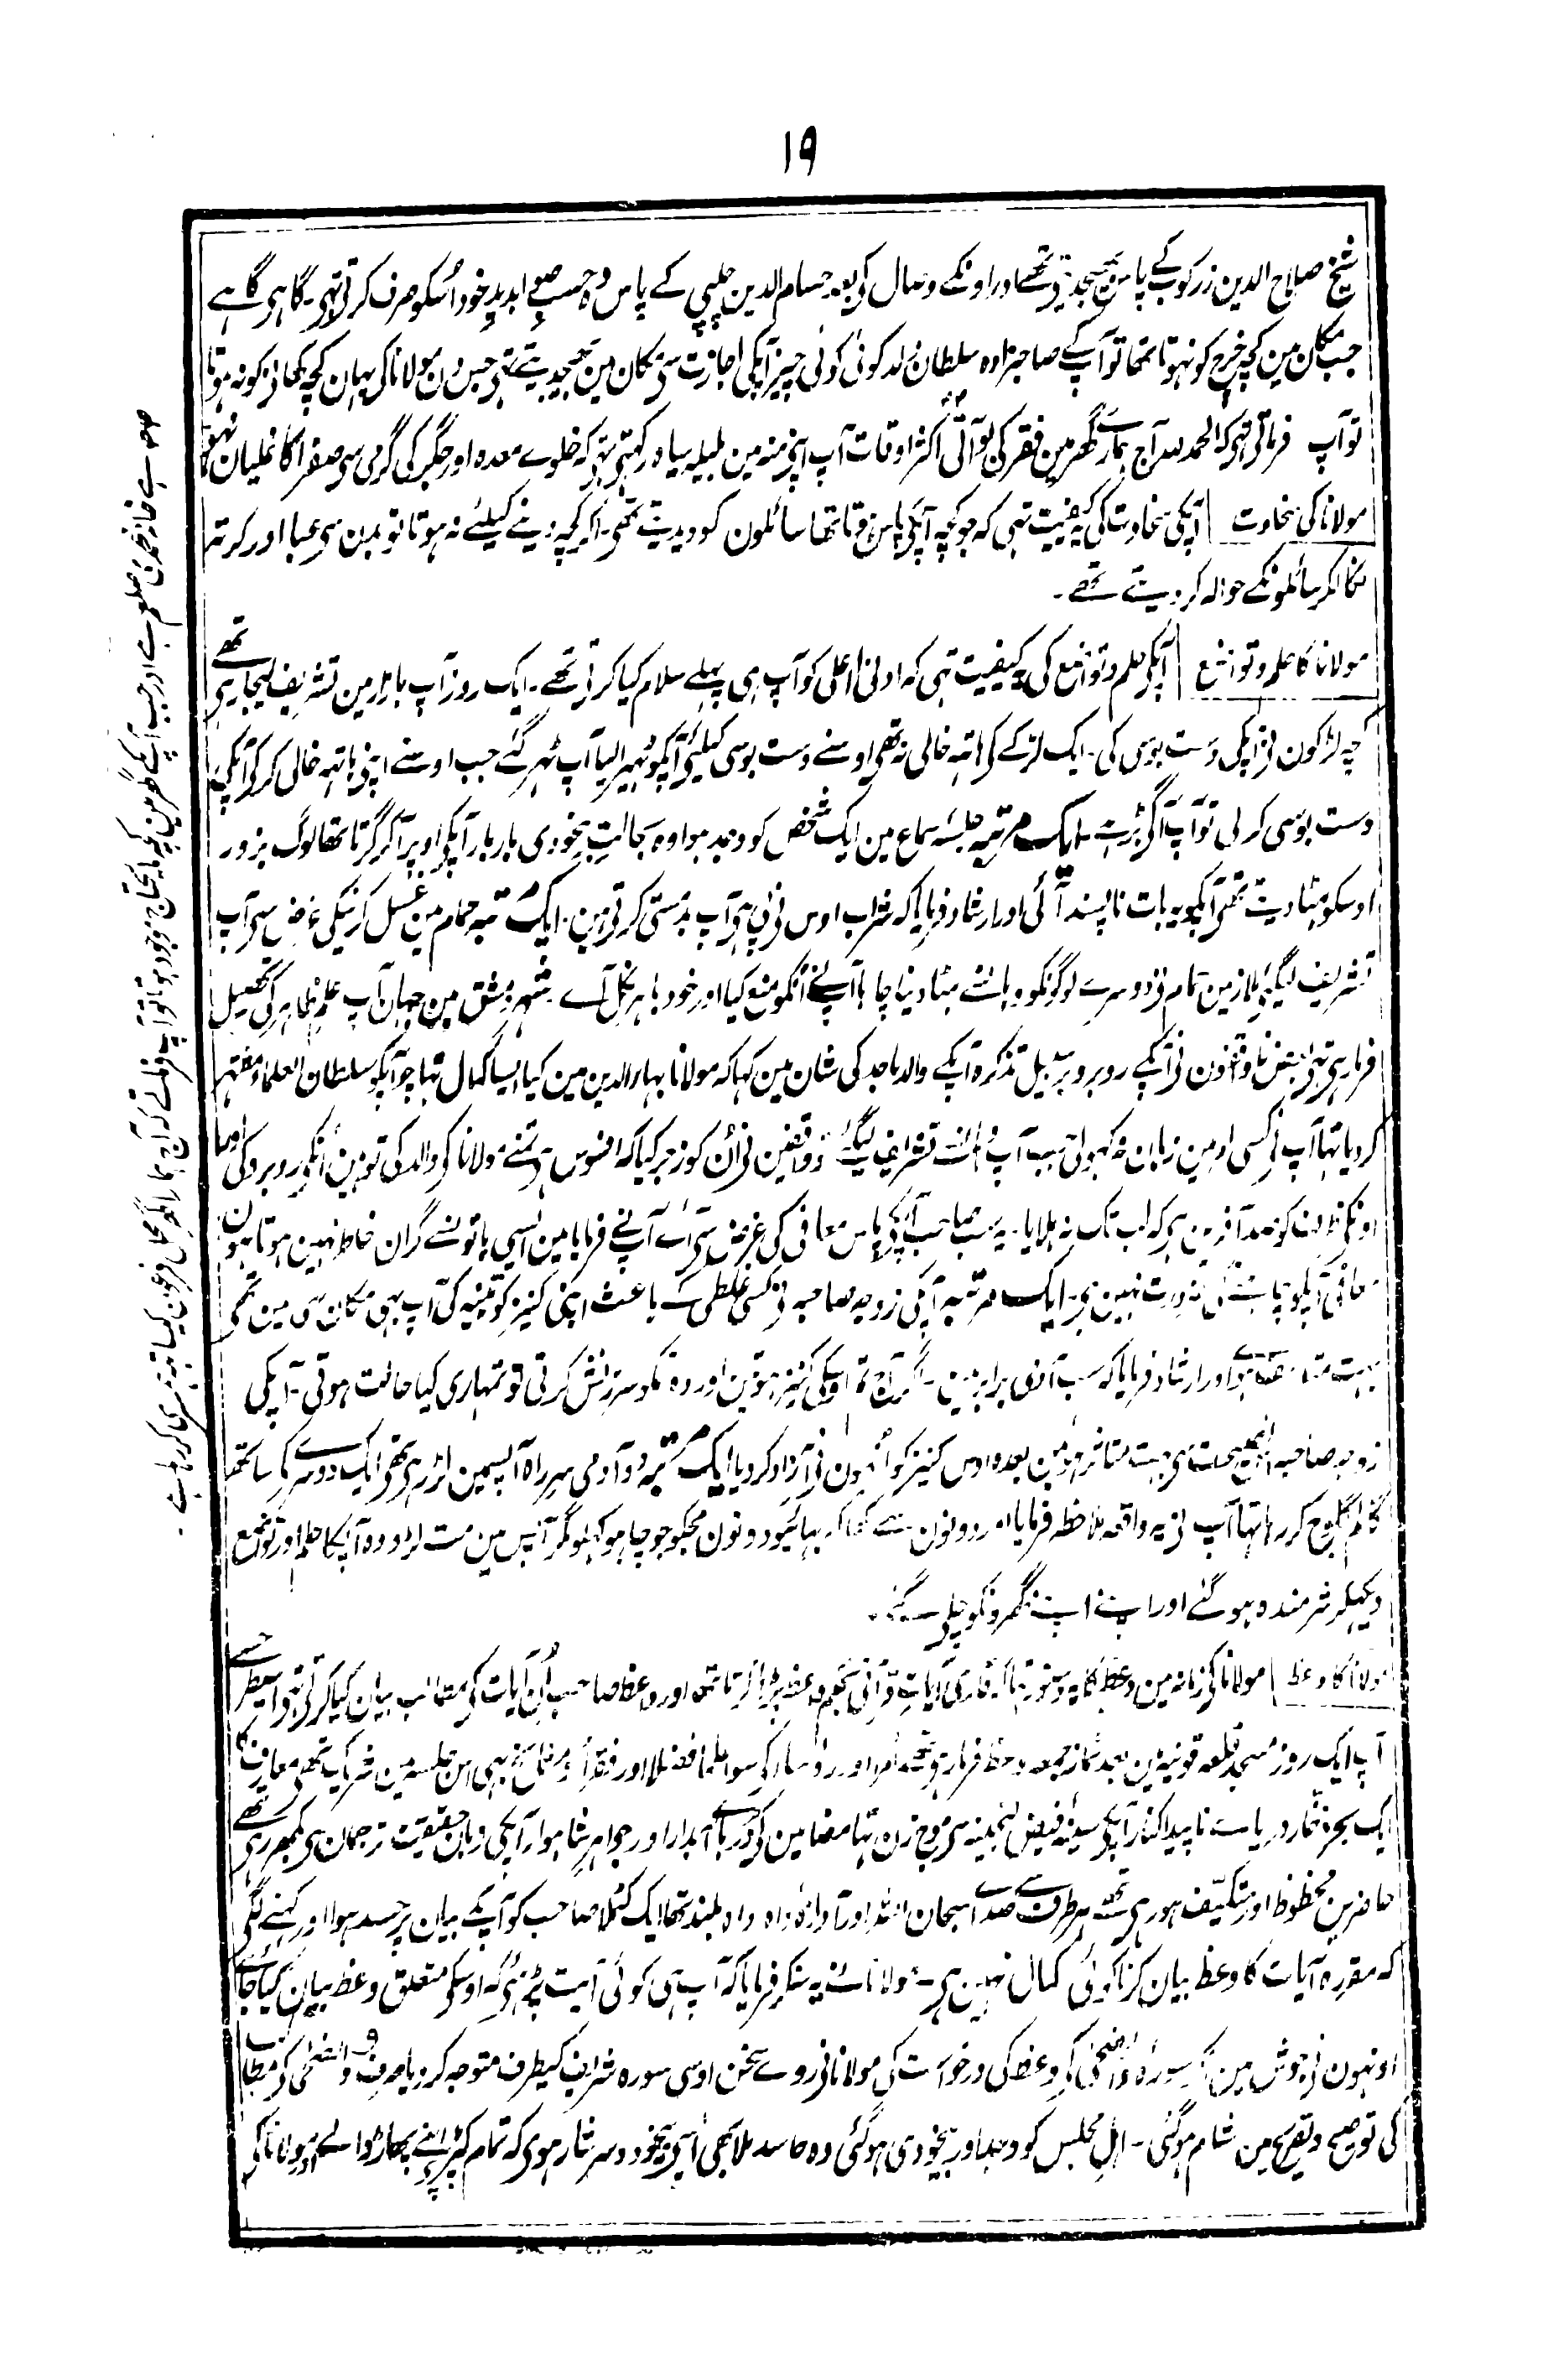 ۱۹
شیخ صلاح الدین زرکوب کے پاس بھیجدیتے تھے اور اونکے وصال کی بعد حسام الدین چلپی کے پاس وہ حسب صوابدید خود اُسکو صرف کرتے تہی۔ گاہی گاہے
جب مکان مین کچہ خرچ کو نہوتا تھا تو آپ کے صاحبزادہ سلطان ولد کوئی کوئی چیز آپکی اجازت سی مکان مین بھیجدیتے تہی جس دن مولانا کی یہان کچہ کھانی کو نہ ہوتا
تو آپ فرماتی تہی کہ الحمد للہ آج ہمارے گھر مین فقر کی بو آتی اکثر اوقات آپ اپنی منہ مین ہلیلہ سیاہ رکہتی تہی کہ خلوے معدہ اور جگر کی گرمی سی صفرا کا غلیان نہو
مولانا کی سخاوت آپکی سخاوت کی کیفیت تہی کہ جو کچہ آپکی پاس ہوتا تھا سائلون کو دیدیتے تھی۔ اگر کچہ دینے کیلئے نہ ہوتا تو بدن سی عبا اور کرتہ
نکالکر سائلونکے حوالہ کر دیتے تھے۔
مولانا کا حلم و تواضع آپکی حلم و تواضع کی یہ کیفیت تہی کہ ادنیٰ اعلی کو آپ ہی پہلے سلام کیا کرتی تھے۔ ایک روز آپ بازار مین تشریف لیجا رہی تھے
کچہ لڑکون نی آپکی دست بوسی کی۔ ایک لڑکے کی ہاتہ خالی نہ تھی اوسنے دست بوسی کیلئی آپکو ٹہیرالیا آپ ٹہر گئے جب اوسنے اپنی ہاتہہ خالی کر کی آپکی
دست بوسی کر لی تو آپ آگی بڑہے۔ ایک مرتبہ جلسۂ سماع مین ایک شخص کو وجد ہوا وہ بحالتِ بیخودی بار بار آپکی اوپر آکر گرتا تھا لوگ بزور
اوسکو ہٹا دیتے تھی آپکو یہ بات ناپسند آئی اور ارشاد فرمایا کہ شراب اوس نی پی ہی آپ بدمستی کرتی ہین۔ ایک مرتبہ حمام مین غسل کرنیکی غرض سی آپ
تشریف لیگئی ملازمین حمام نی دوسرے لوگونکو وہانسے ہٹا دینا چاہا آپنے اُنکو منع کیا اور خود باہر نکل آے۔ شہر دمشق مین جہان آپ علم ظاہر کی تحصیل
فرما رہی تہی بعض ناواقفون نی آپکے روبرو بر سبیل تذکرہ آپکے والد ماجد کی شان مین کہا کہ مولانا بہار الدین مین کیا ایسا کمال تہا جو آپکو سلطان العلما مشتہر
کر دیا تہا آپ نی کسی امر مین زبان نہ کہولی جب آپ وہانسے تشریف لیگئے تو واقفین نی اُن کو زجر کیا کہ افسوس ہی تمنے مولانا کی والد کی توہین اُنکی روبرو کی اور
اونکی ظرف کو صد آفرین ہی کہ اب تک نہ ہلایا۔ یہ سب صاحب آپکی پاس معافی کی غرض سی آے آپنے فرمایا مین ایسی باتونسے گران خاطر نہین ہوتا ہون
معافی آپکو چاہنے کی ضرورت نہین ہی۔ ایک مرتبہ آپکی زوجہ صاحبہ نی کسی غلطی کے باعث اپنی کنیز کو تنبیہ کی آپ بہی مکان ہی مین تھی
بہت متاسف ہوے اور ارشاد فرمایا کہ سب آدمی برابر ہین۔ اگر آج تم اوسکی کنیز ہوتین اور وہ تمکو سرزنش کرتی تو تمہاری کیا حالت ہوتی۔ آپکی
زوجہ صاحبہ اس نصیحت سی بہت متاثر ہوئین بعدہ اوس کنیز کو اُنہون نی آزاد کر دیا ایک مرتبہ دو آدمی سر راہ آپسمین لڑ رہے تھی ایک دوسرے کے ساتھ
گالم گلوچ کر رہا تہا آپ نی یہ واقعہ ملاحظہ فرمایا اور دونون سے کہا کہ بہائیو دونون مجکو جو چاہو کہلو مگر آپس مین مت لڑو وہ آپکا حلم اور تواضع
دیکہکر شرمندہ ہو گئے اور اپنے اپنے گھرونکو چلے گئے۔
مولانا کا وعظ مولانا کی زمانہ مین وعظ کا یہ دستور تہا کہ قاری آیاتِ قرآنی پڑہا کرتا تھا اور واعظ صاحب اُن آیات کی مطالب بیان کیا کرتے تہے اسیطرح سے
آپ ایک روز مسجد قلعہ قونیہ مین بعد نماز جمعہ وعظ فرما رہے تھے امرا اور رؤسا کے سوا علما فضلا اور فقرا و مشائخ بہی اس جلسہ مین شریک تھے معارف کا
ایک بحر ذخار دریاے ناپیدا کنار آپکی سینۂ فیض گنجینہ سی موج زن تہا مضامین کی دُرہاے آبدار اور جواہر شاہوار آپکی زبان حقیقت ترجمان سی بکھر رہی تھے
حاضرین محظوظ اور متکیف ہو رہی تھے ہر طرف سے صداے سبحان اللہ اور آوازۂ واہ واہ بلند تھا ایک مُلا صاحب کو آپکے بیان پر حسد ہوا اور کہنے لگی
کہ مقررہ آیات کا وعظ بیان کرنا کوئی کمال نہین ہی۔ مولانا نے یہ سنکر فرمایا کہ آپ ہی کوئی آیت پڑہئے کہ اوسکی متعلق وعظ بیان کیا جائے
اونہون نی جوش مین آکر سورۂ والضحیٰ کے وعظ کی درخواست کی مولانا نی روے سخن اوسی سورہ شریف کیطرف متوجہ کر دیا حرف و والضحیٰ کی مطالب
کی توضیح و تقریح مین شام ہوگئی۔ اہل مجلس کو وجد اور بیخودی ہوگئی وہ حاسد ملا بھی ایسی بیخود و سرشار ہوی کہ تمام کپڑے اپنے پھاڑ ڈالے اور مولانا کی
خانہ محمد صلعم ہے اور جب آپکے گھر مین مایحتاج موجود ہوتا تو آپ فرماتے کہ آج ہمارا گھر خاص فرعون کیساتھ ہمسری کر رہا ہے۔